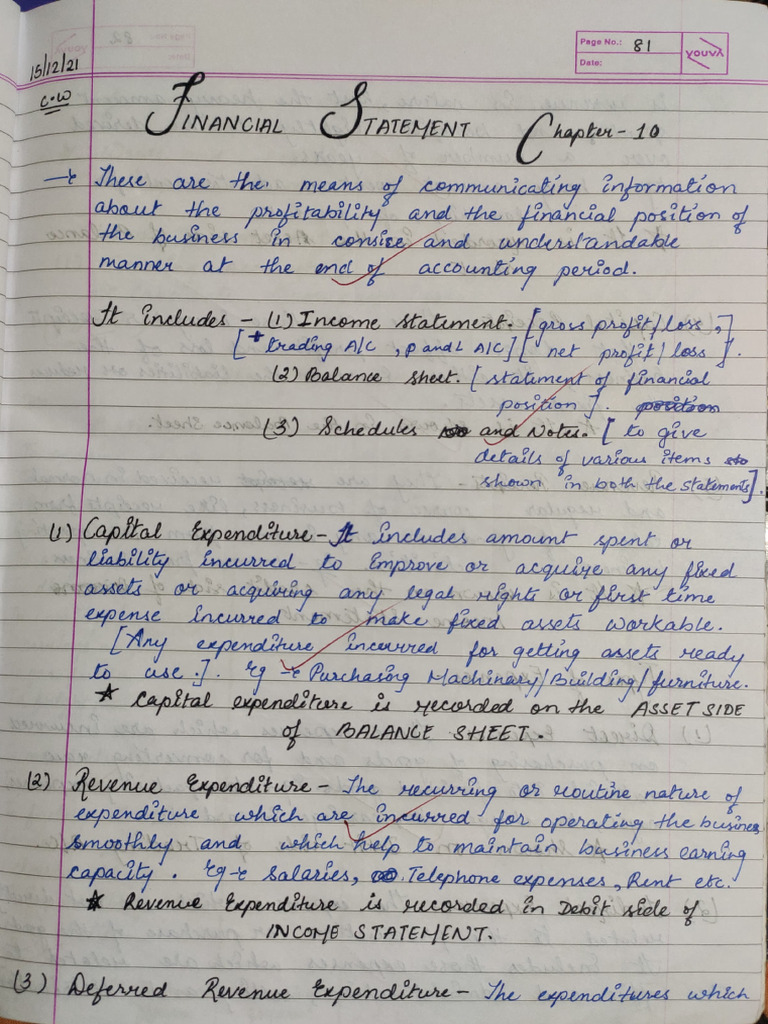 Page No.: 81
youva
Date:
15/12/21
C.W
FINANCIAL STATEMENT Chapter-10
→ These are the means of communicating information
about the profitability and the financial position of
the business in consise and understandable
manner at the end of accounting period.
It includes - (1) Income statement. [gross profit/loss,]
[trading A/C, P and L A/C] [net profit/loss].
(2) Balance sheet. [statement of financial
position].
(3) Schedules and Notes. [to give
details of various items
shown in both the statements].
(1) Capital Expenditure - It includes amount spent or
liability incurred to improve or acquire any fixed
assets or acquiring any legal rights or first time
expense incurred to make fixed assets workable.
[Any expenditure incurred for getting assets ready
to use.]. Eg → Purchasing Machinary/Building/furniture.
* Capital expenditure is recorded on the ASSET SIDE
of BALANCE SHEET.
(2) Revenue Expenditure - The recurring or routine nature of
expenditure which are incurred for operating the business
smoothly and which help to maintain business earning
capacity. Eg → Salaries, Telephone expenses, Rent etc.
* Revenue Expenditure is recorded in Debit side of
INCOME STATEMENT.
(3) Deferred Revenue Expenditure - The expenditures which